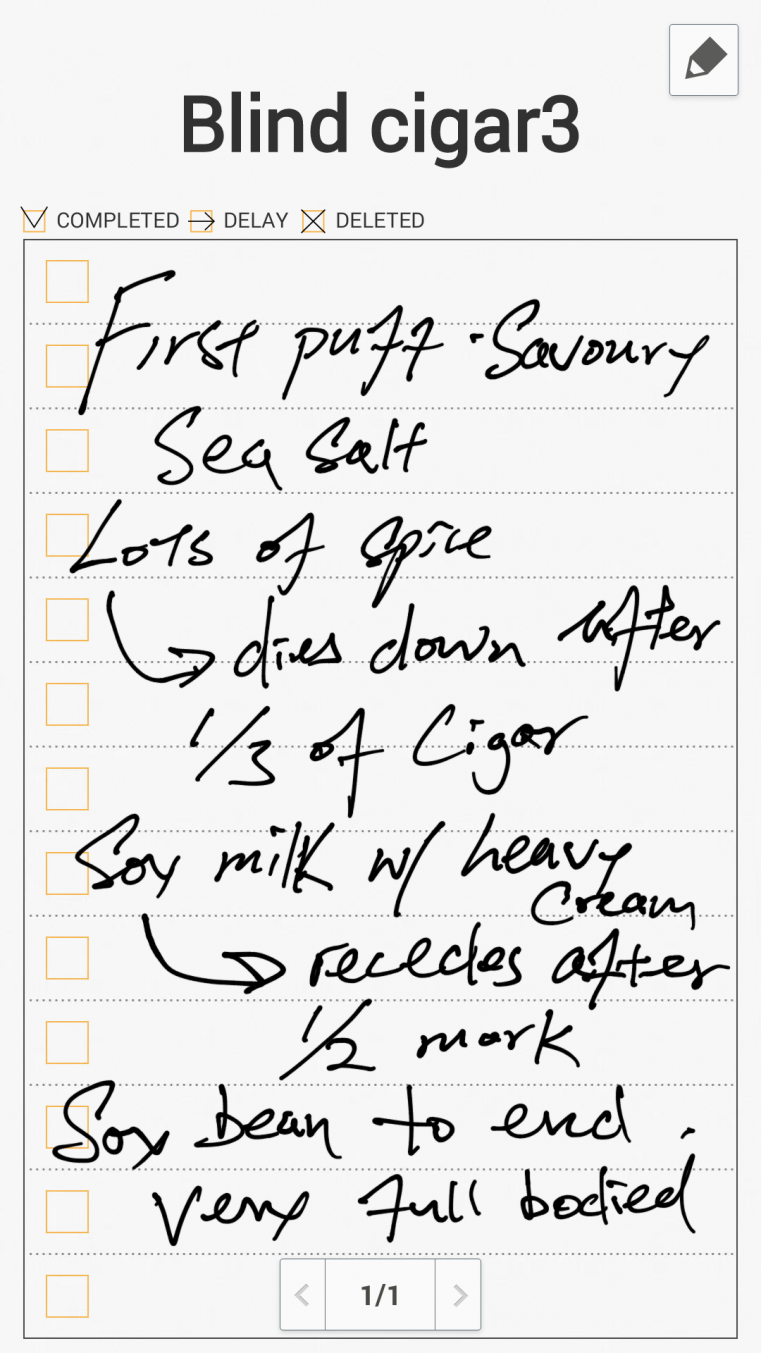 Blind cigar3
COMPLETED DELAY DELETED
First puff - Savoury
Sea Salt
Lots of spice
↳ dies down after
1/3 of Cigar
Soy milk w/ heavy
Cream
↳ recedes after
1/2 mark
Soy bean to end.
Very full bodied
1/1